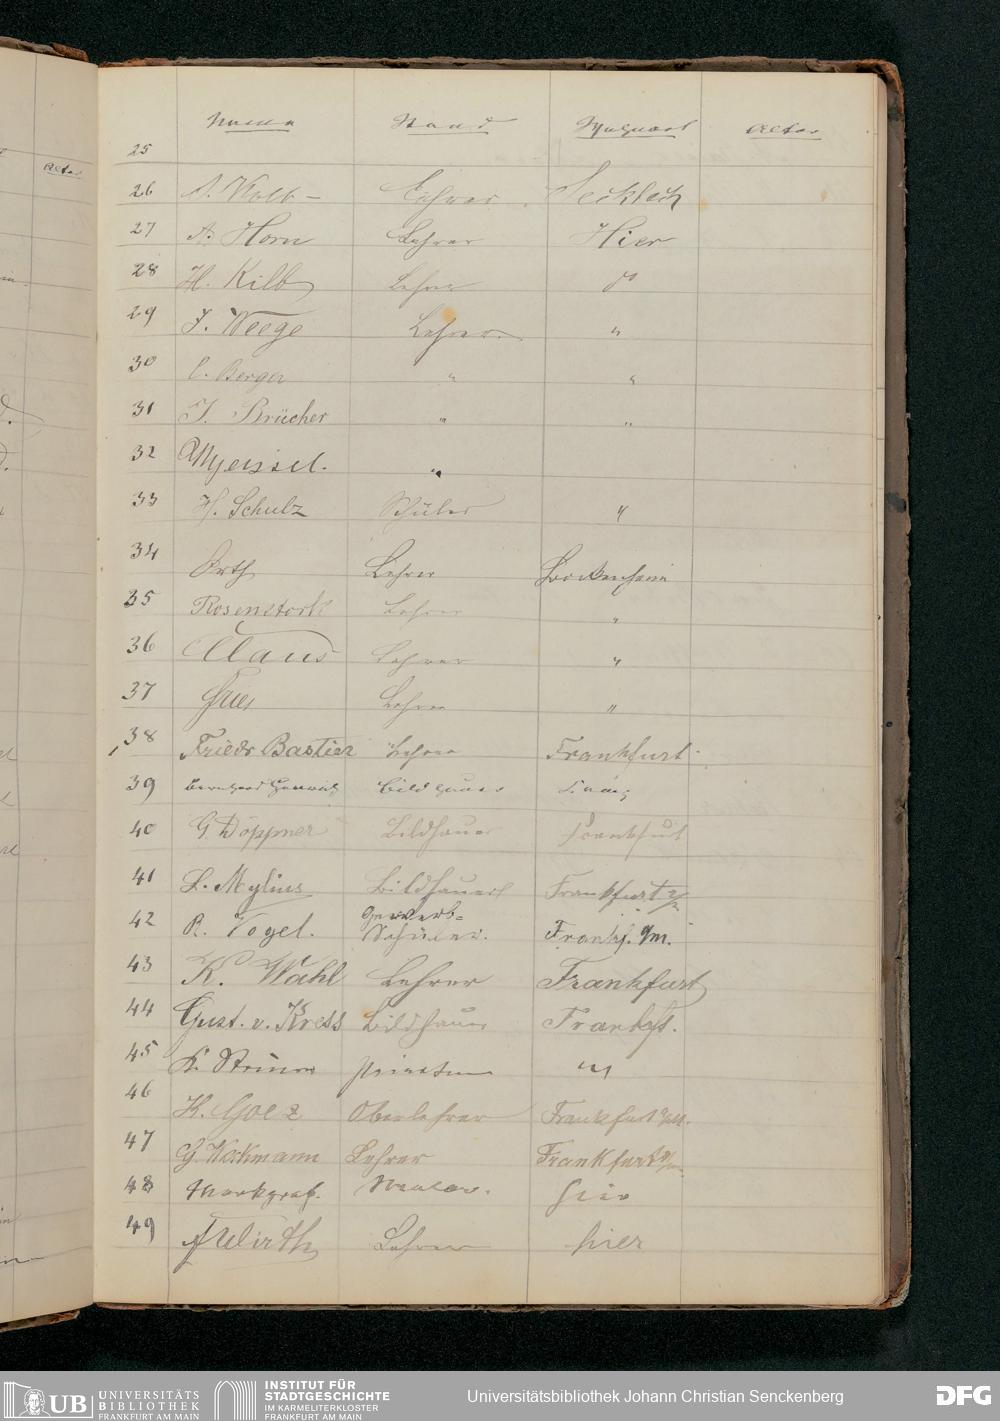 Alter
Name Stand Wohnort Alter
25
26 A. Kolb – Lehrer Secklach
27 A. Horn Lehrer Hier
28 H. Kilb Lehrer do
29 J. Weege Lehrer "
30 C. Berger " "
31 J. Brücher " "
32 "
33 H. Schulz Schüler "
34 Orth Lehrer Bockenheim
35 Rosenstock Lehrer "
36 Claus Lehrer "
37 Lehrer "
38 Friedr Bastier Lehrer Frankfurt
39 Bildhauer
40 G. Döppner Bildhauer Frankfurt
41 L. Mylius Bildhauer Frankfurt a/M
42 R. Vogel. Gewerb=
Schüler. Frankf. a/m.
43 K. Wahl Lehrer Frankfurt
44 Gust. v. Kress Bildhauer Frankft.
45 "
46 K. Goez Oberlehrer Frankfurt a/M.
47 G. Workmann Lehrer Frankfurt a/m
48 Markgraf. hier
49 J Wirth Lehrer hier
UB UNIVERSITÄTS
BIBLIOTHEK
FRANKFURT AM MAIN
INSTITUT FÜR
STADTGESCHICHTE
IM KARMELITERKLOSTER
FRANKFURT AM MAIN
Universitätsbibliothek Johann Christian Senckenberg
DFG